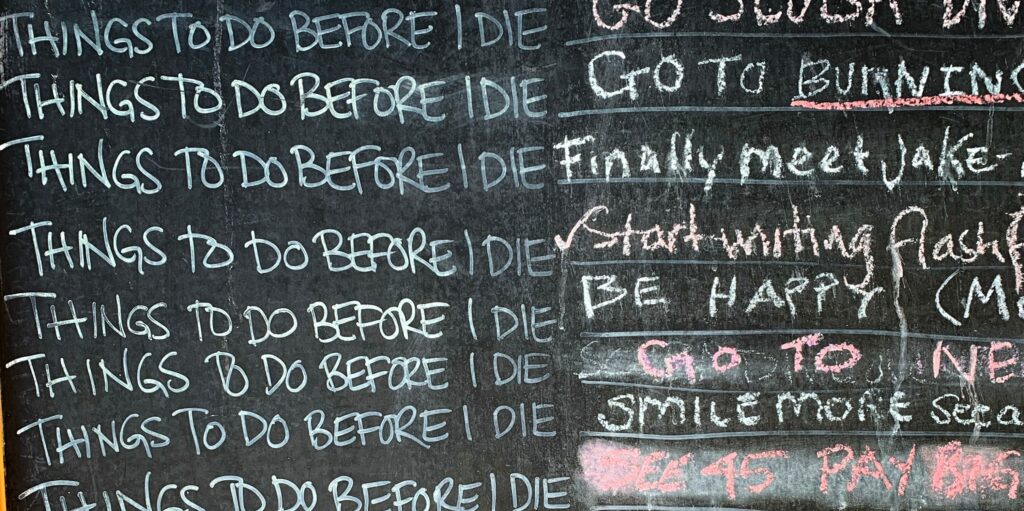 THINGS TO DO BEFORE I DIE GO SCUBA DIV
THINGS TO DO BEFORE I DIE GO TO BURNING
THINGS TO DO BEFORE I DIE Finally meet Jake-
THINGS TO DO BEFORE I DIE ✓Start writing flash
THINGS TO DO BEFORE I DIE BE HAPPY (M
THINGS TO DO BEFORE I DIE GO TO NE
THINGS TO DO BEFORE I DIE SMILE MORE
THINGS TO DO BEFORE I DIE SEE 45 PAY